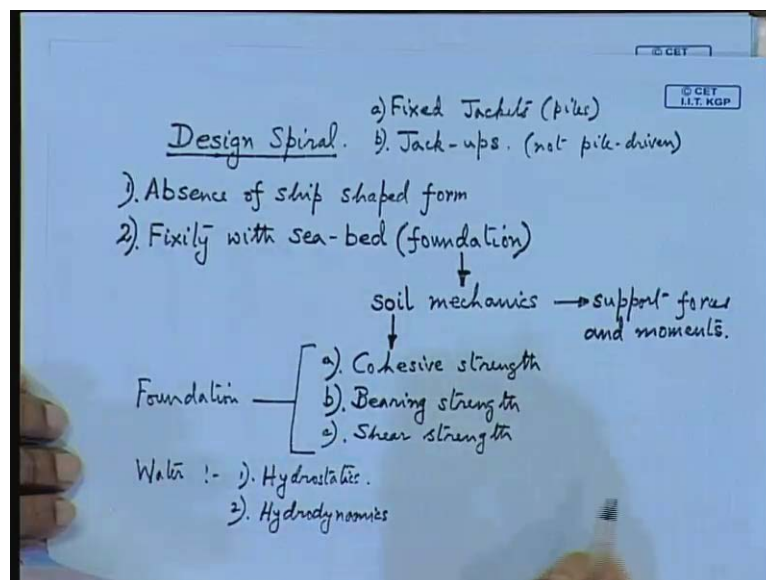 © CET
© CET
I.I.T. KGP
a) Fixed Jackets (piles)
Design Spiral. b). Jack-ups. (not pile-driven)
1). Absence of ship shaped form
2). Fixity with sea-bed (foundation)
soil mechanics → support forces
and moments.
Foundation
a). Cohesive strength
b). Bearing strength
c). Shear strength
Water :- 1). Hydrostatics.
2). Hydrodynamics